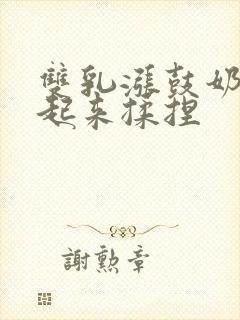 雙乳漲鼓奶
起來揉捏
謝勲章